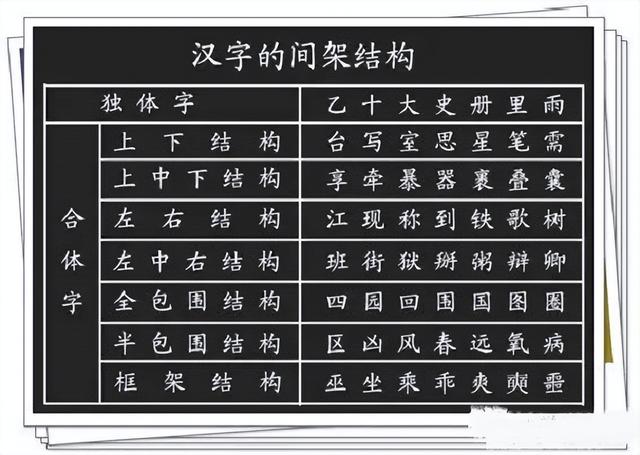 汉字的间架结构
独体字 乙十大史册里雨
合体字
上下结构 台写室思星笔需
上中下结构 享牵暴器裹叠囊
左右结构 江现称到铁歌树
左中右结构 班街狱掰粥辩卿
全包围结构 四园回围国图圈
半包围结构 区凶风春远氧病
框架结构 巫坐乘乖爽奭噩